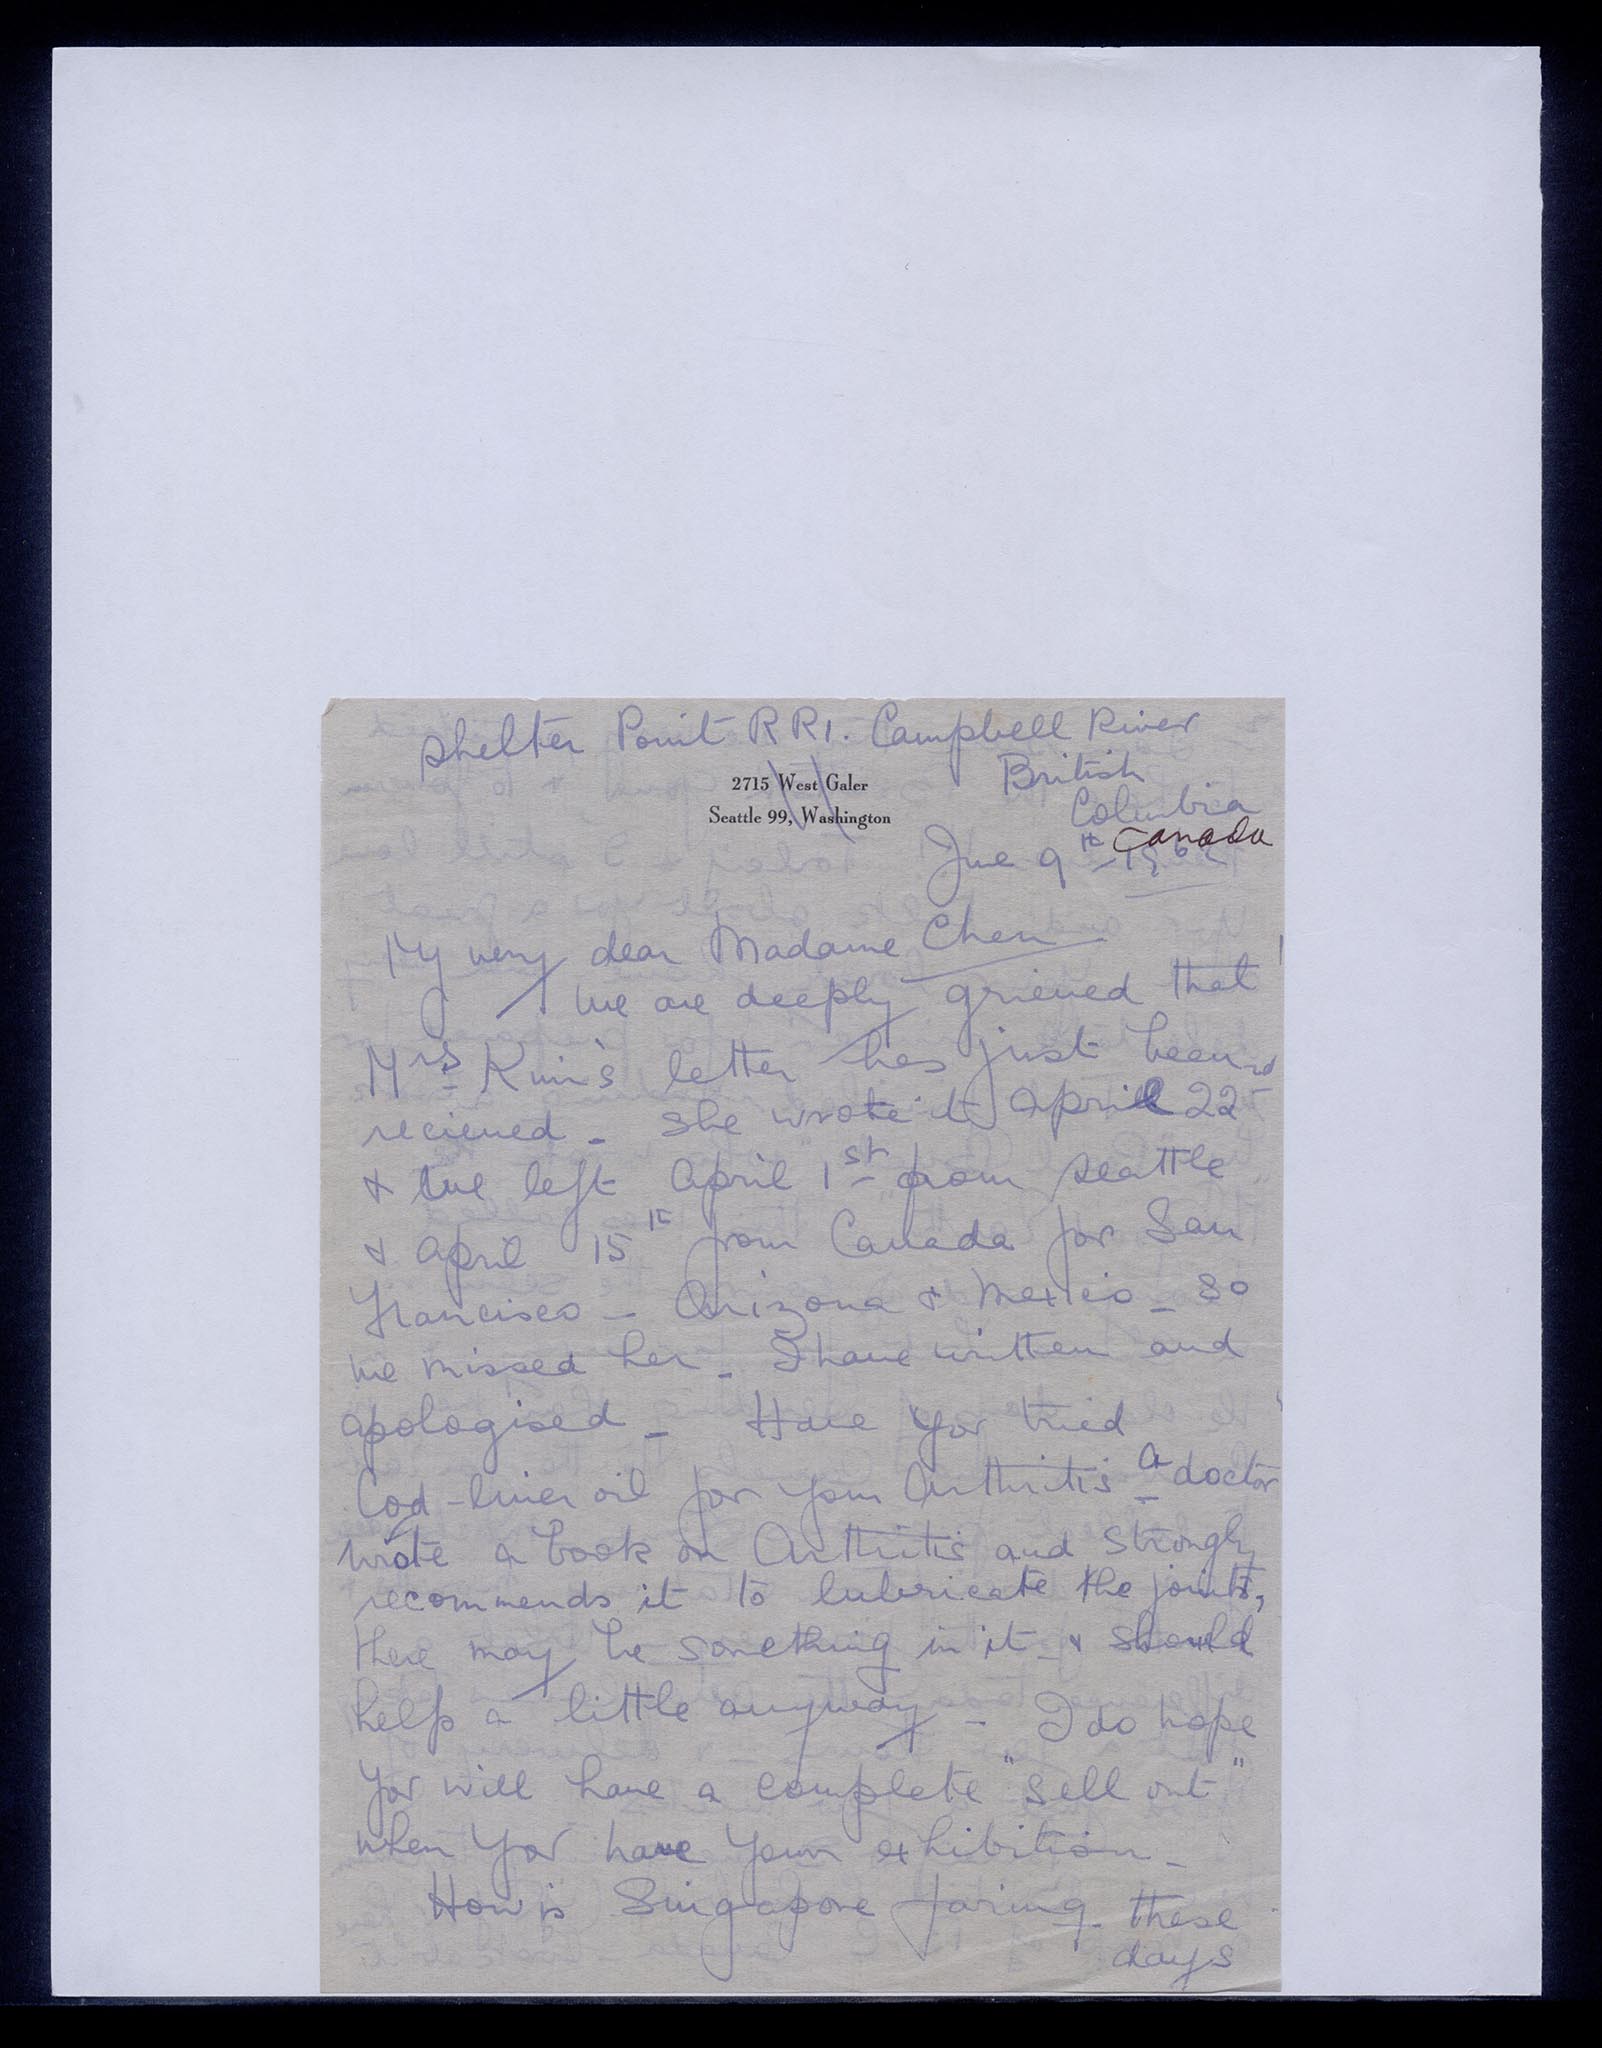 Shelter Point RR1. Campbell River
2715 West Galer
British
Seattle 99, Washington
Columbia
Canada
June 9th - 1962
My very dear Madame Chen
We are deeply grieved that
Mrs Kim's letter has just been
recieved - she wrote it April 22nd
& we left April 1st from Seattle
& April 15th from Canada for San
Francisco - Arizona & Mexico - so
we missed her - I have written and
apologised - Have you tried
Cod-liver oil for your Arthritis - a doctor
wrote a book on Arthritis and strongly
recommends it to lubricate the joints,
there may be something in it - & should
help a little anyway - I do hope
you will have a complete "sell out"
when you have your exhibition -
How is Singapore faring these
days